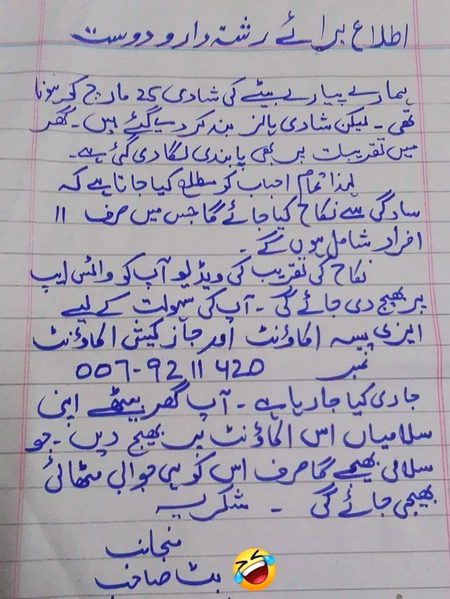 اطلاع برائے رشتہ دار و دوست
ہمارے پیارے بیٹے کی شادی 25 مارچ کو ہونا
تھی ۔ لیکن شادی ہالز بند کر دیے گئے ہیں ۔ گھر
میں تقریبات پر بھی پابندی لگا دی گئی ہے ۔
لہذا تمام احباب کو مطلع کیا جاتا ہے کہ
سادگی سے نکاح کیا جائے گا جس میں صرف 11
افراد شامل ہوں گے ۔
نکاح کی تقریب کی ویڈیو آپ کو واٹس ایپ
پر بھیج دی جائے گی ۔ آپ کی سہولت کے لیے
ایزی پیسہ اکاؤنٹ اور جاز کیش اکاؤنٹ
نمبر 007-92 11 420
جاری کیا جا رہا ہے ۔ آپ گھر بیٹھے اپنی
سلامیاں اس اکاؤنٹ پر بھیج دیں ۔ جو
سلامی بھیجے گا صرف اس کو ہی جوابی مٹھائی
بھیجی جائے گی ۔ شکریہ
منجانب
بٹ صاحب